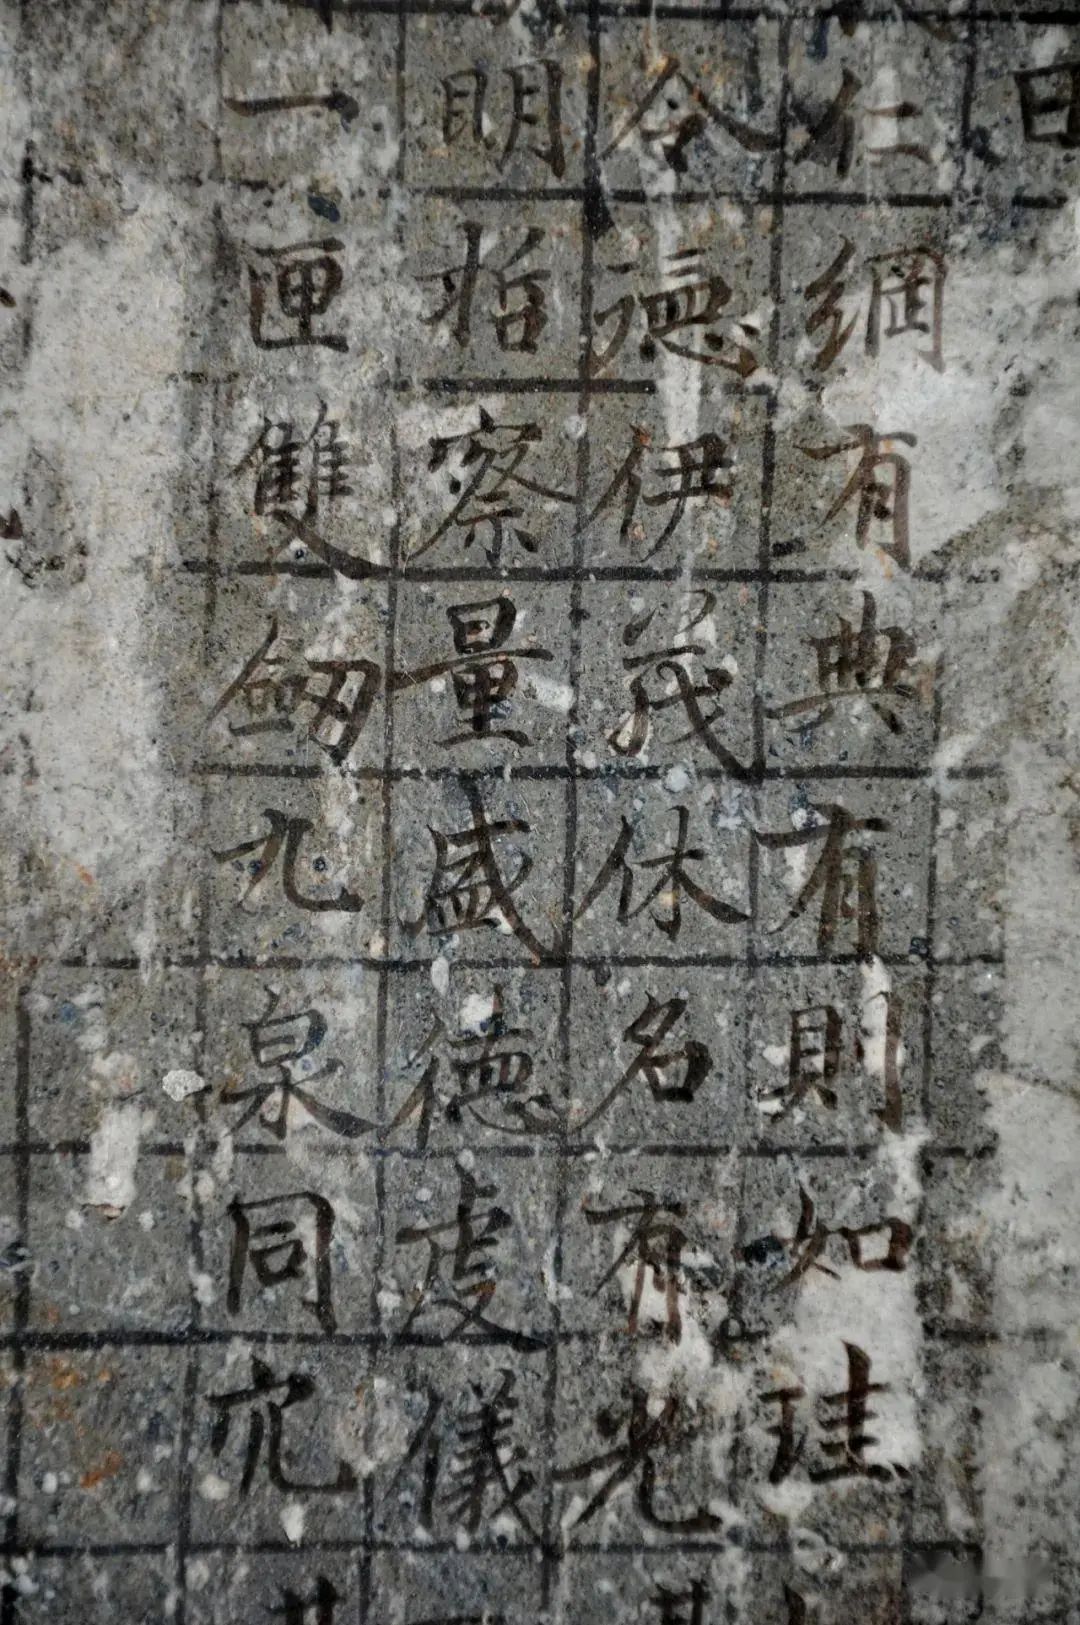 仁綱有典有則如珪
令德伊茂休名有光
明哲察量盛德虔儀
一匣雙劔九泉同穴